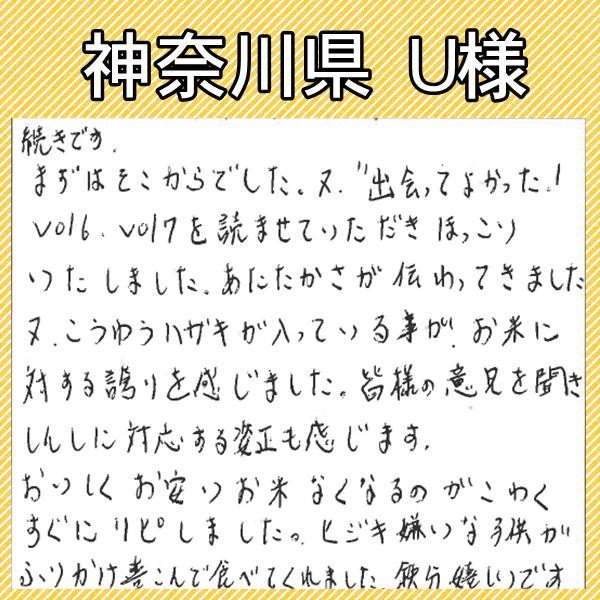 神奈川県 U様
続きです.
まずはそこからでした。又.“出会ってよかった！
vol6. vol7を読ませていただきほっこり
いたしました。あたたかさが伝わってきました
又.こうゆうハガキが入っている事が.お米に
対する誇りを感じました。皆様の意見を聞き
しんしに対応する姿正も感じます.
おいしくお安いお米なくなるのがこわく
すぐにリピしましたっ。ヒジキ嫌いな子供が
ふりかけ喜こんで食べてくれました.鉄分嬉しいです